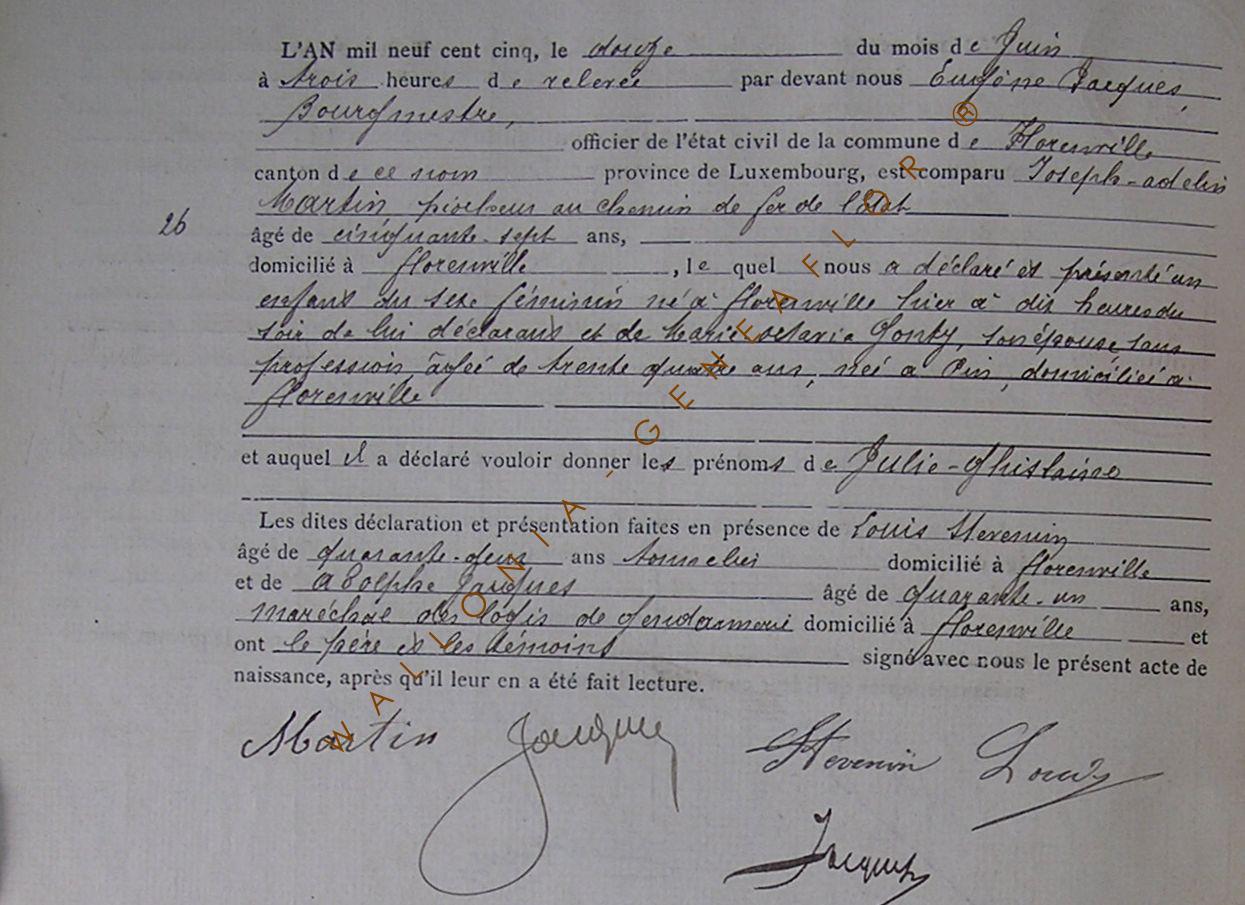 L'AN mil neuf cent cinq, le douze du mois de Juin
à trois heures de relevée par devant nous Eugène Jacques,
Bourgmestre,
officier de l'état civil de la commune de Florenville
canton de ce nom province de Luxembourg, est comparu Joseph-adelin
Martin, piocheur au chemin de fer de l'Etat
26
âgé de cinquante-sept ans,
domicilié à florenville, le quel nous a déclaré et présenté un
enfant du sexe féminin né à florenville hier à dix heures du
soir de lui déclarant et de Marie octavie Gonty, son épouse sans
profession, âgée de trente quatre ans, née à Pin, domiciliée à
florenville
et auquel il a déclaré vouloir donner les prénoms de Julie-Ghislaine
Les dites déclaration et présentation faites en présence de Louis Stevenin
âgé de quarante-deux ans tonnelier domicilié à florenville
et de adolphe Jacques âgé de quarante-un ans,
maréchal des logis de gendarmerie domicilié à florenville et
ont le père et les témoins signé avec nous le présent acte de
naissance, après qu'il leur en a été fait lecture.
Martin Jacques Stevenin Louis
Jacques
WALLONIA - GENEAFLOR ®